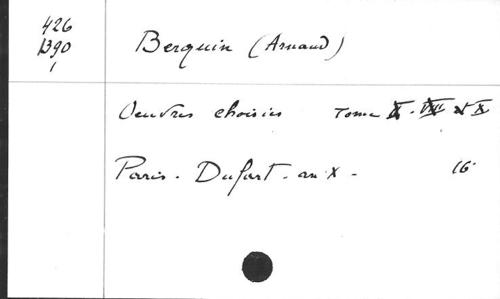 426
B90
1
Berquin (Arnaud)
Oeuvres choisies Tome X. VIII et X
Paris - Dufart - an X - 16°